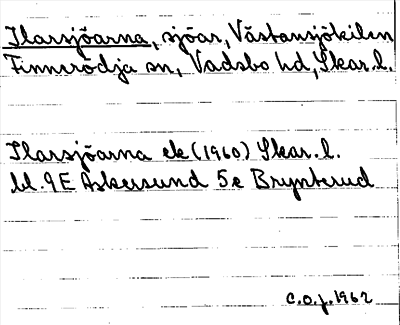 Ilarsjöarna, sjöar, Västansjökilen
Finnerödja sn, Vadsbo hd, Skar.l.
Ilarsjöarna ek (1960) Skar.l.
bl. 9E Askersund 5e Brynterud
C.O.J. 1962